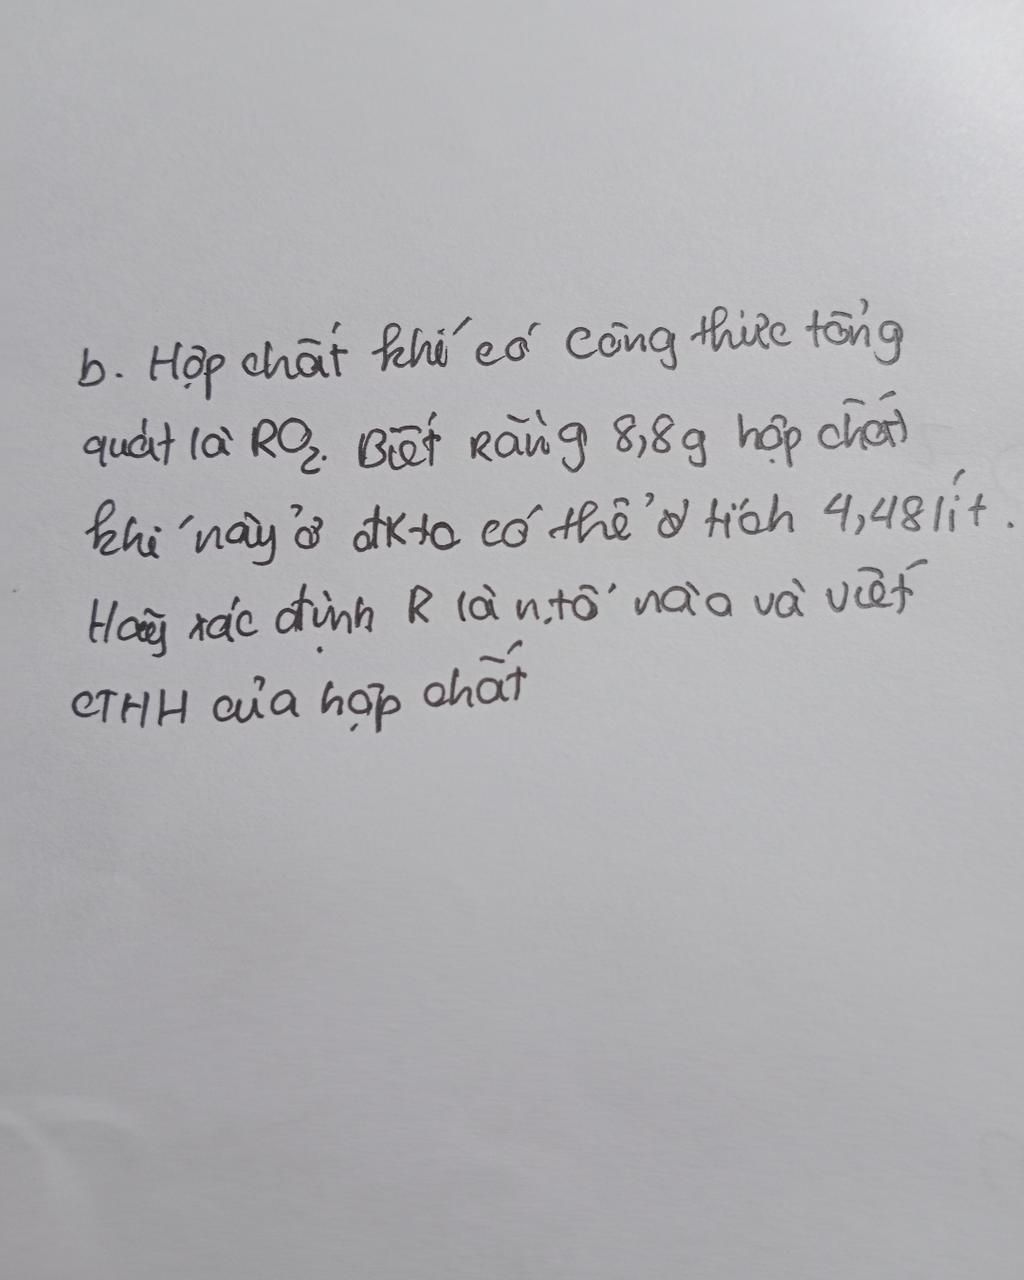 b. Hợp chất khí có công thức tổng
quát là RO₂. Biết Rằng 8,8g hợp chất
khí này ở đktc có thể ở tích 4,48 lít.
Hãy xác định R là n.tố nào và viết
CTHH của hợp chất